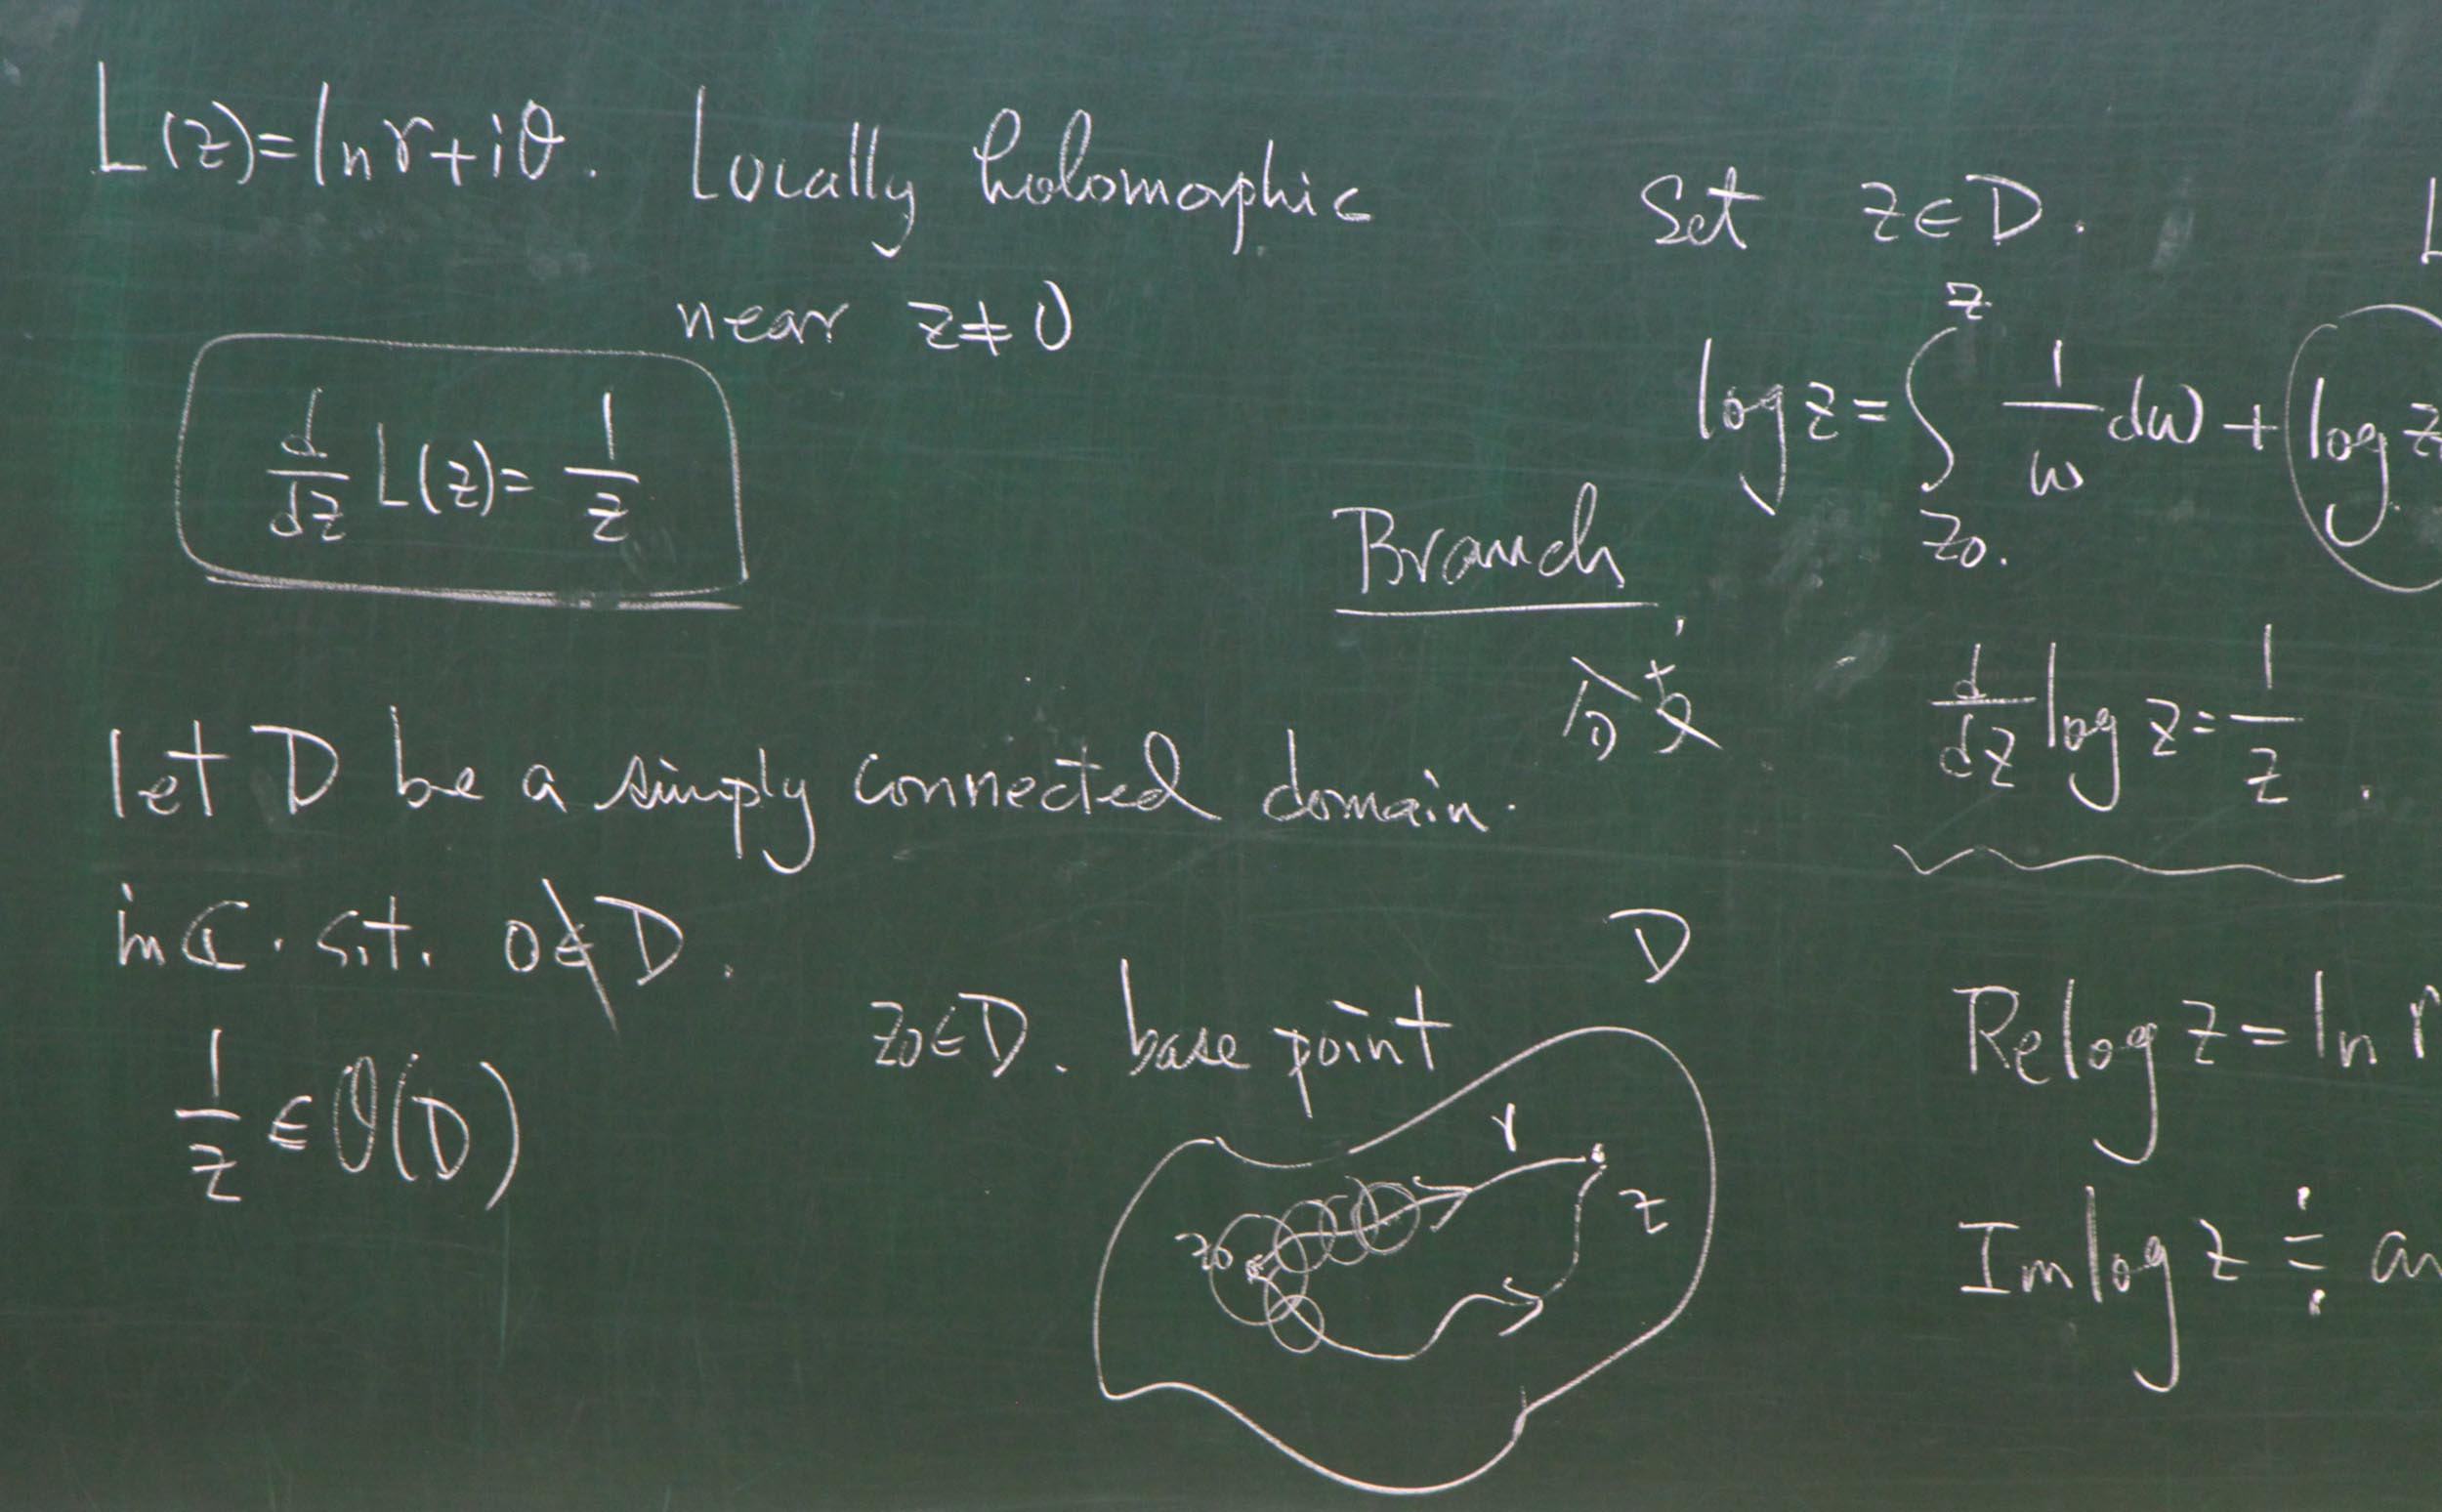 L(z)=ln r+iθ. Locally holomorphic
near z≠0
d/dz L(z)= 1/z
let D be a simply connected domain.
in ℂ. s.t. 0∉D.
1/z ∈ O(D)
z₀∈D. base point
D
γ
z₀
z
Branch
分支
Set z∈D.
log z = ∫_{z₀}^{z} 1/w dw + log z
d/dz log z = 1/z.
Re log z = ln r
Im log z ≑